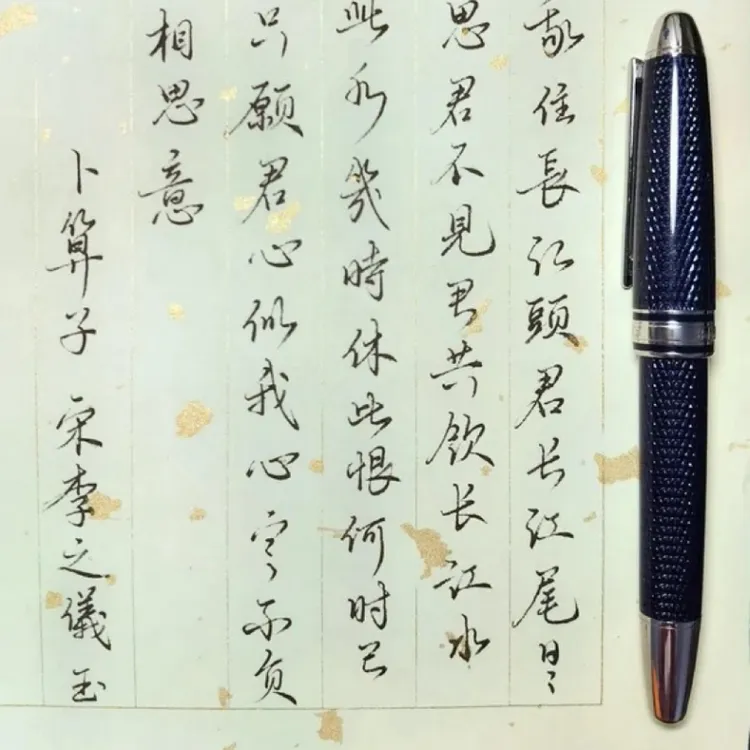 我住長江頭君长江尾日〻
思君不見君共飲长江水
此水幾時休此恨何时已
只願君心似我心定不负
相思意
卜算子 宋李之儀 玉